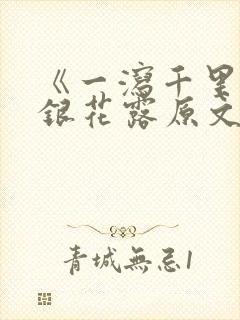 《一瀉千里
銀花露原文
青城無忌1